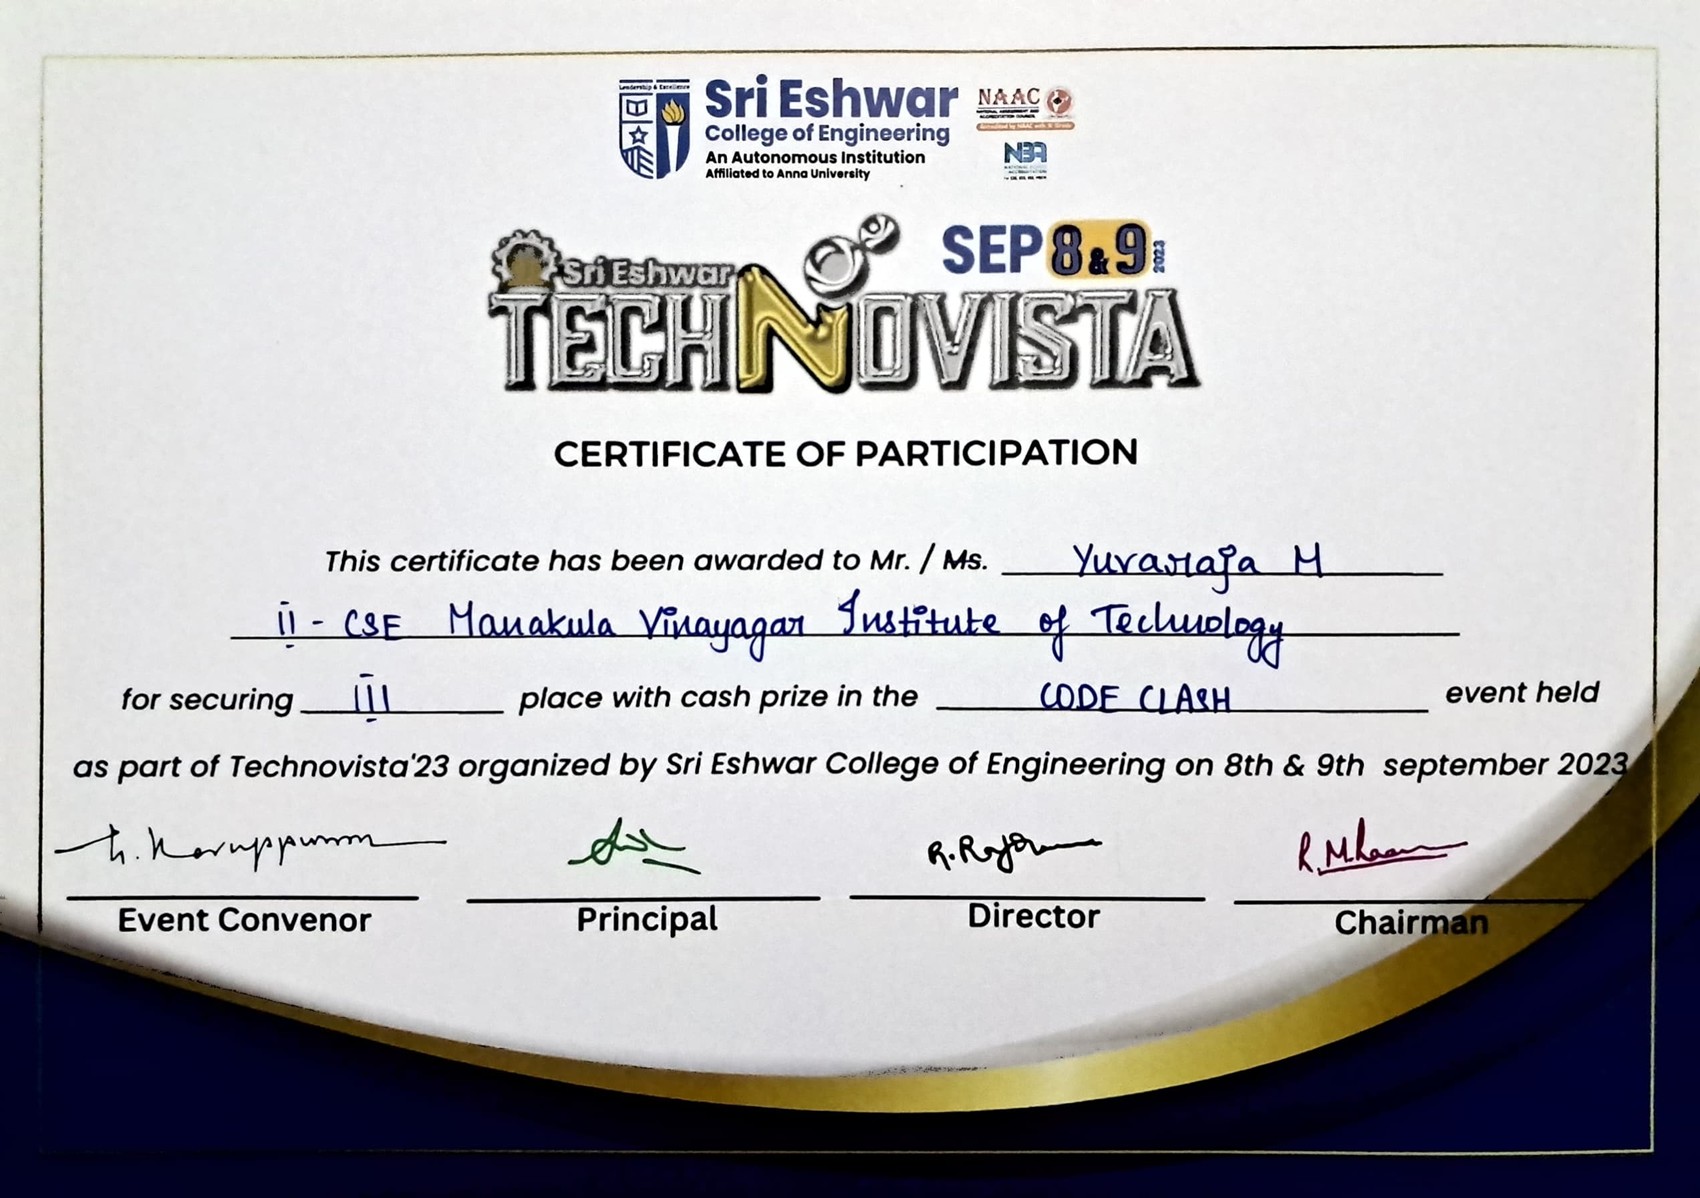 Leadership & Excellence
Sri Eshwar
College of Engineering
An Autonomous Institution
Affiliated to Anna University
NAAC
NATIONAL ASSESSMENT AND
ACCREDITATION COUNCIL
NBA
SEP 8 & 9 2023
Sri Eshwar
TECHNOVISTA
CERTIFICATE OF PARTICIPATION
This certificate has been awarded to Mr. / Ms. Yuvaraja M
II - CSE Manakula Vinayagar Institute of Technology
for securing III place with cash prize in the CODE CLASH event held
as part of Technovista'23 organized by Sri Eshwar College of Engineering on 8th & 9th september 2023
Event Convenor Principal Director Chairman